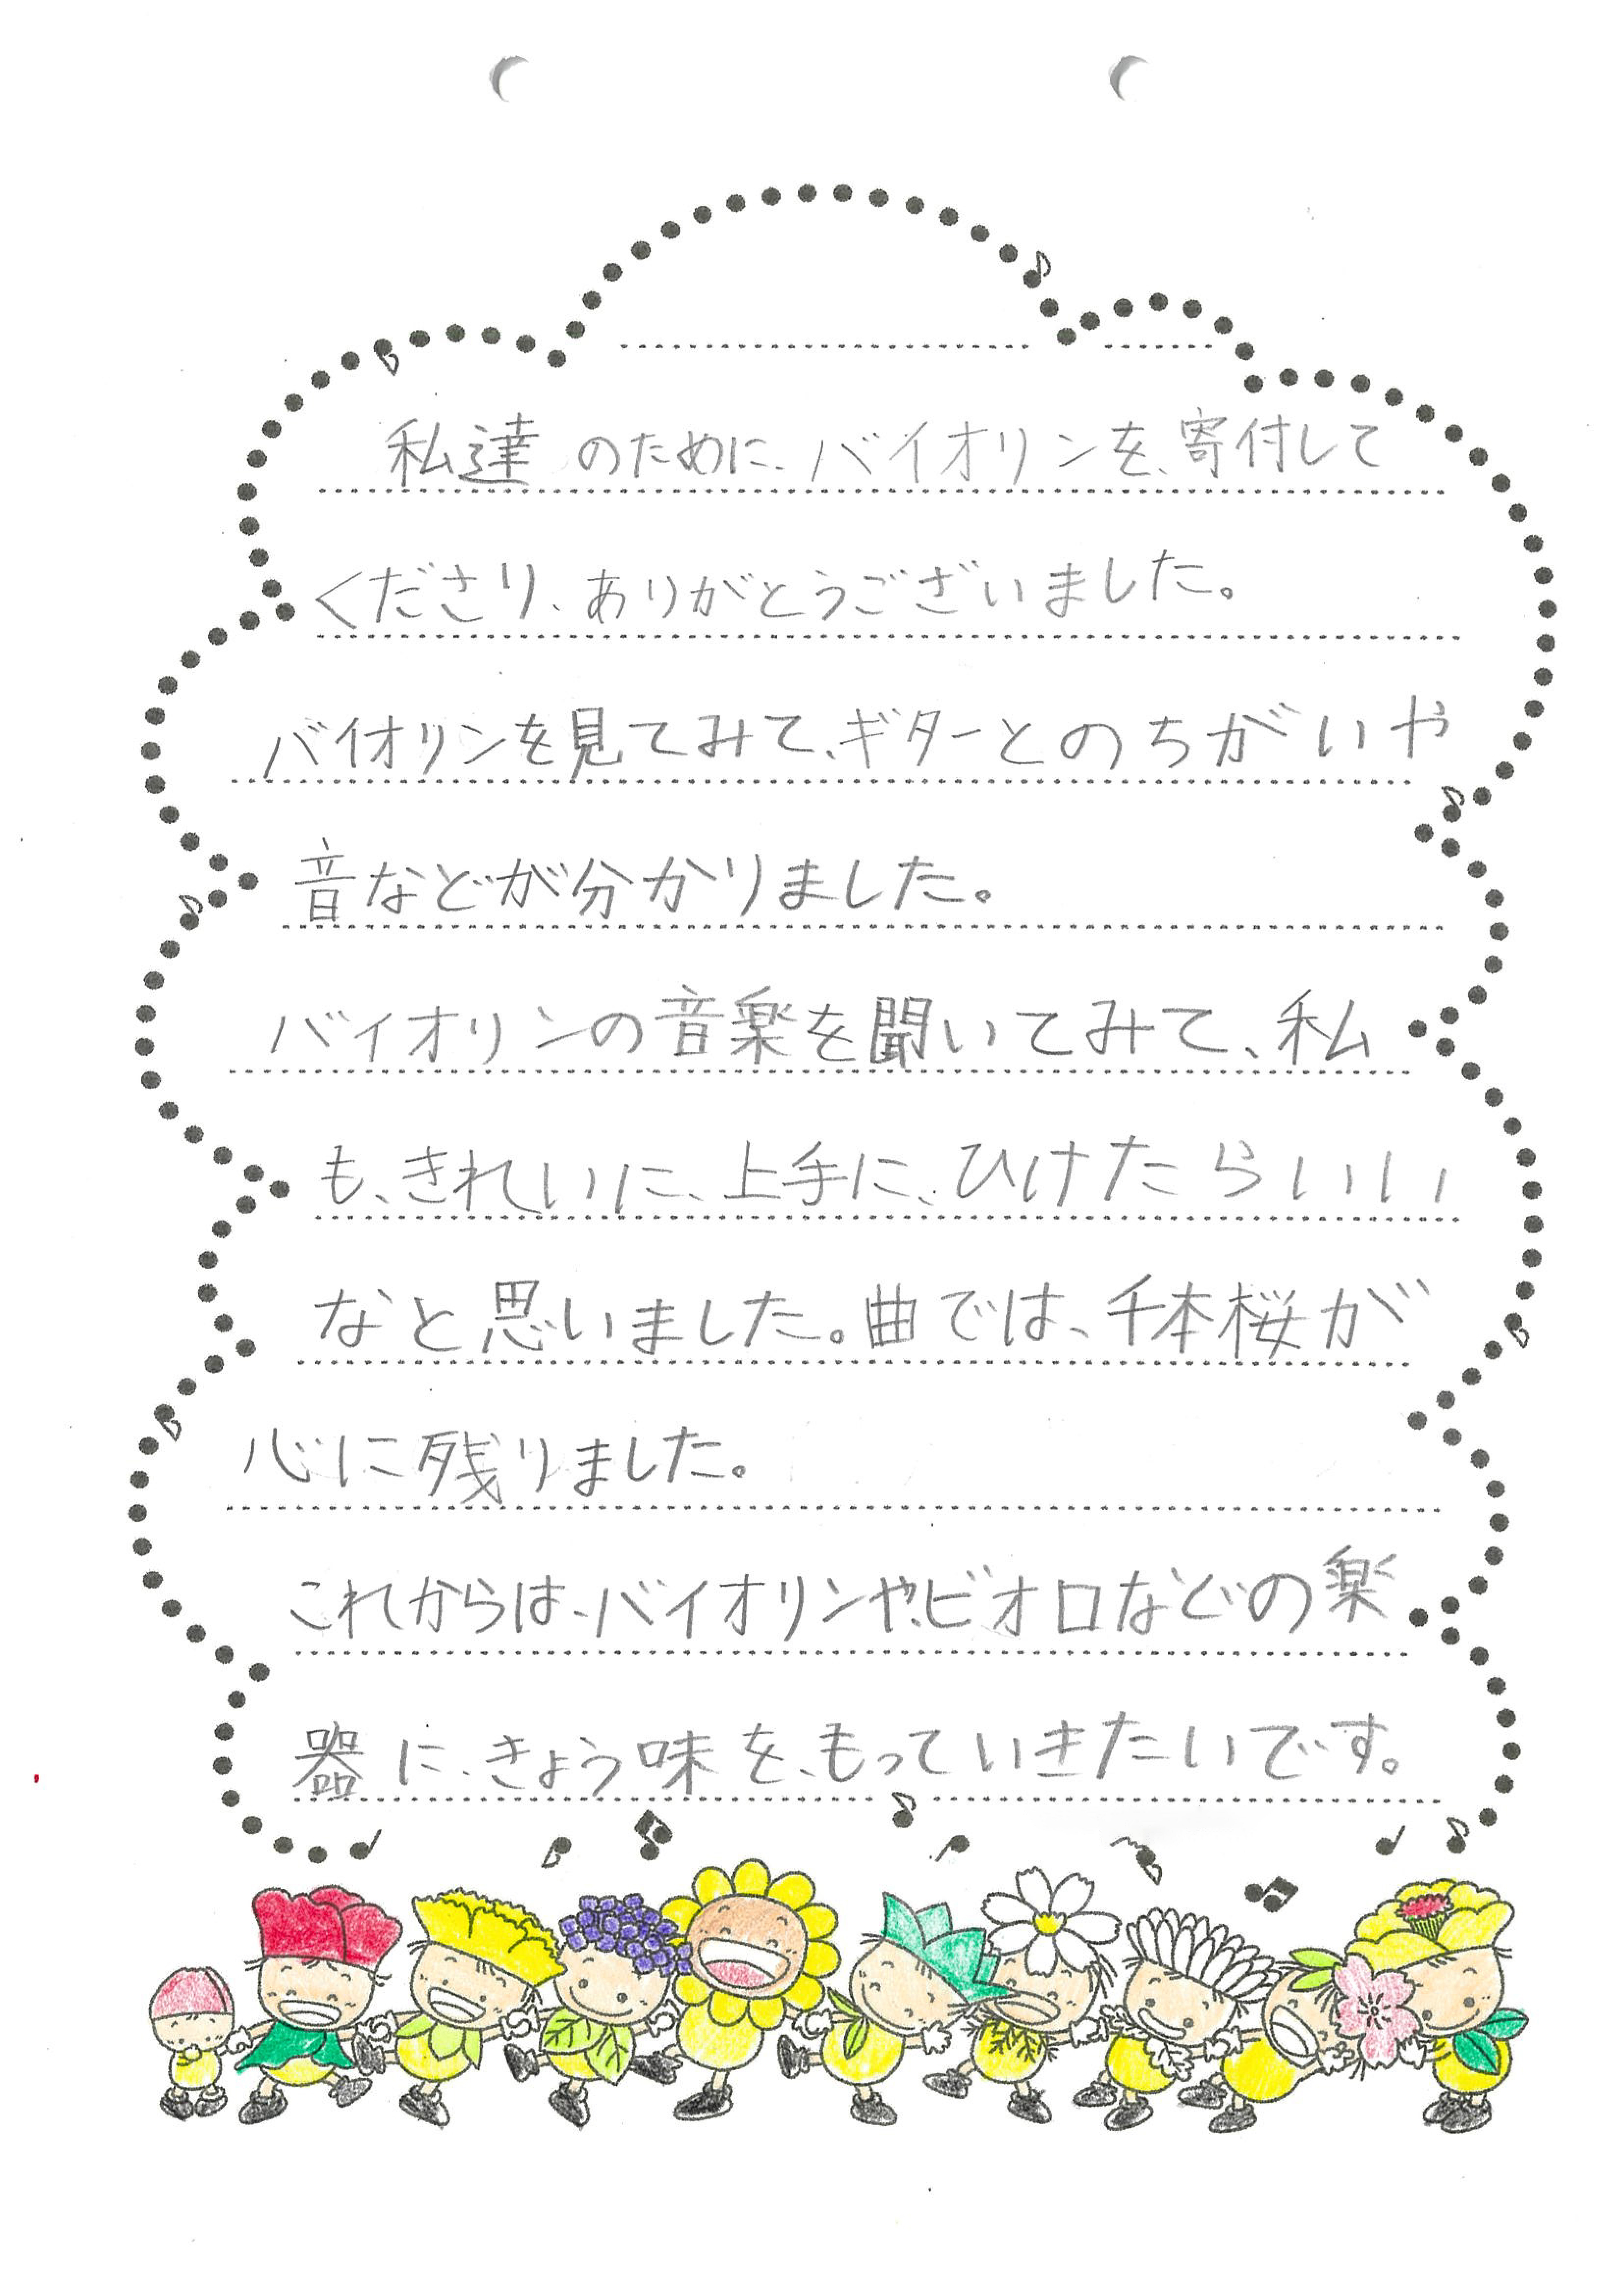 私達のために、バイオリンを、寄付して
くださり、ありがとうございました。
バイオリンを見てみて、ギターとのちがいや
音などが分かりました。
バイオリンの音楽を聞いてみて、私
も、きれいに、上手に、ひけたらいい
なと思いました。曲では、千本桜が
心に残りました。
これからは、バイオリンや、ビオロなどの楽
器に、きょう味を、もっていきたいです。